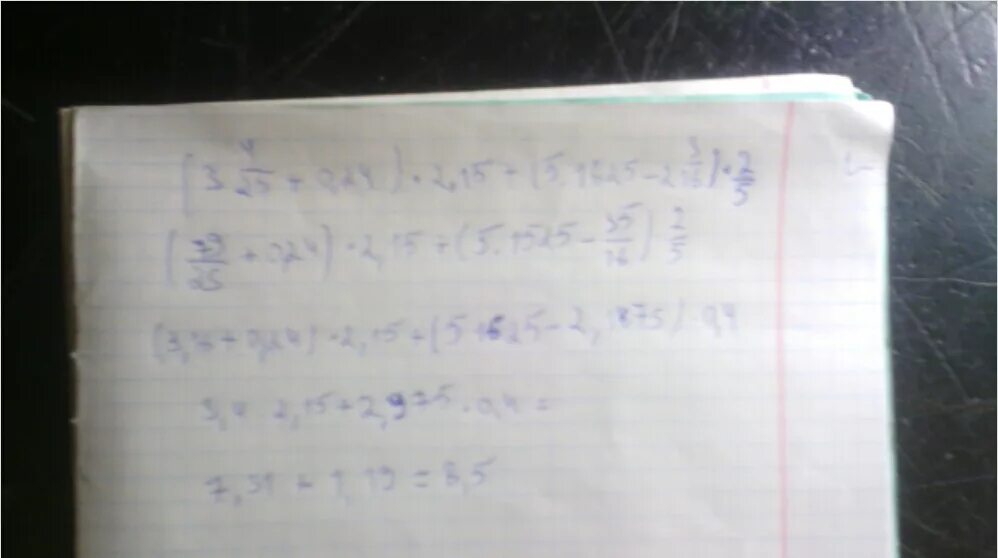 (3 4/25 + 0,24) · 2,15 + (5.1625 - 2 3/16) · 2/5
(79/25 + 0,24) · 2,15 + (5.1625 - 35/16) 2/5
(3,16 + 0,24) · 2,15 + (5.1625 - 2,1875) 0,4
3,4 2,15 + 2,975 · 0,4 =
7,31 + 1,19 = 8,5